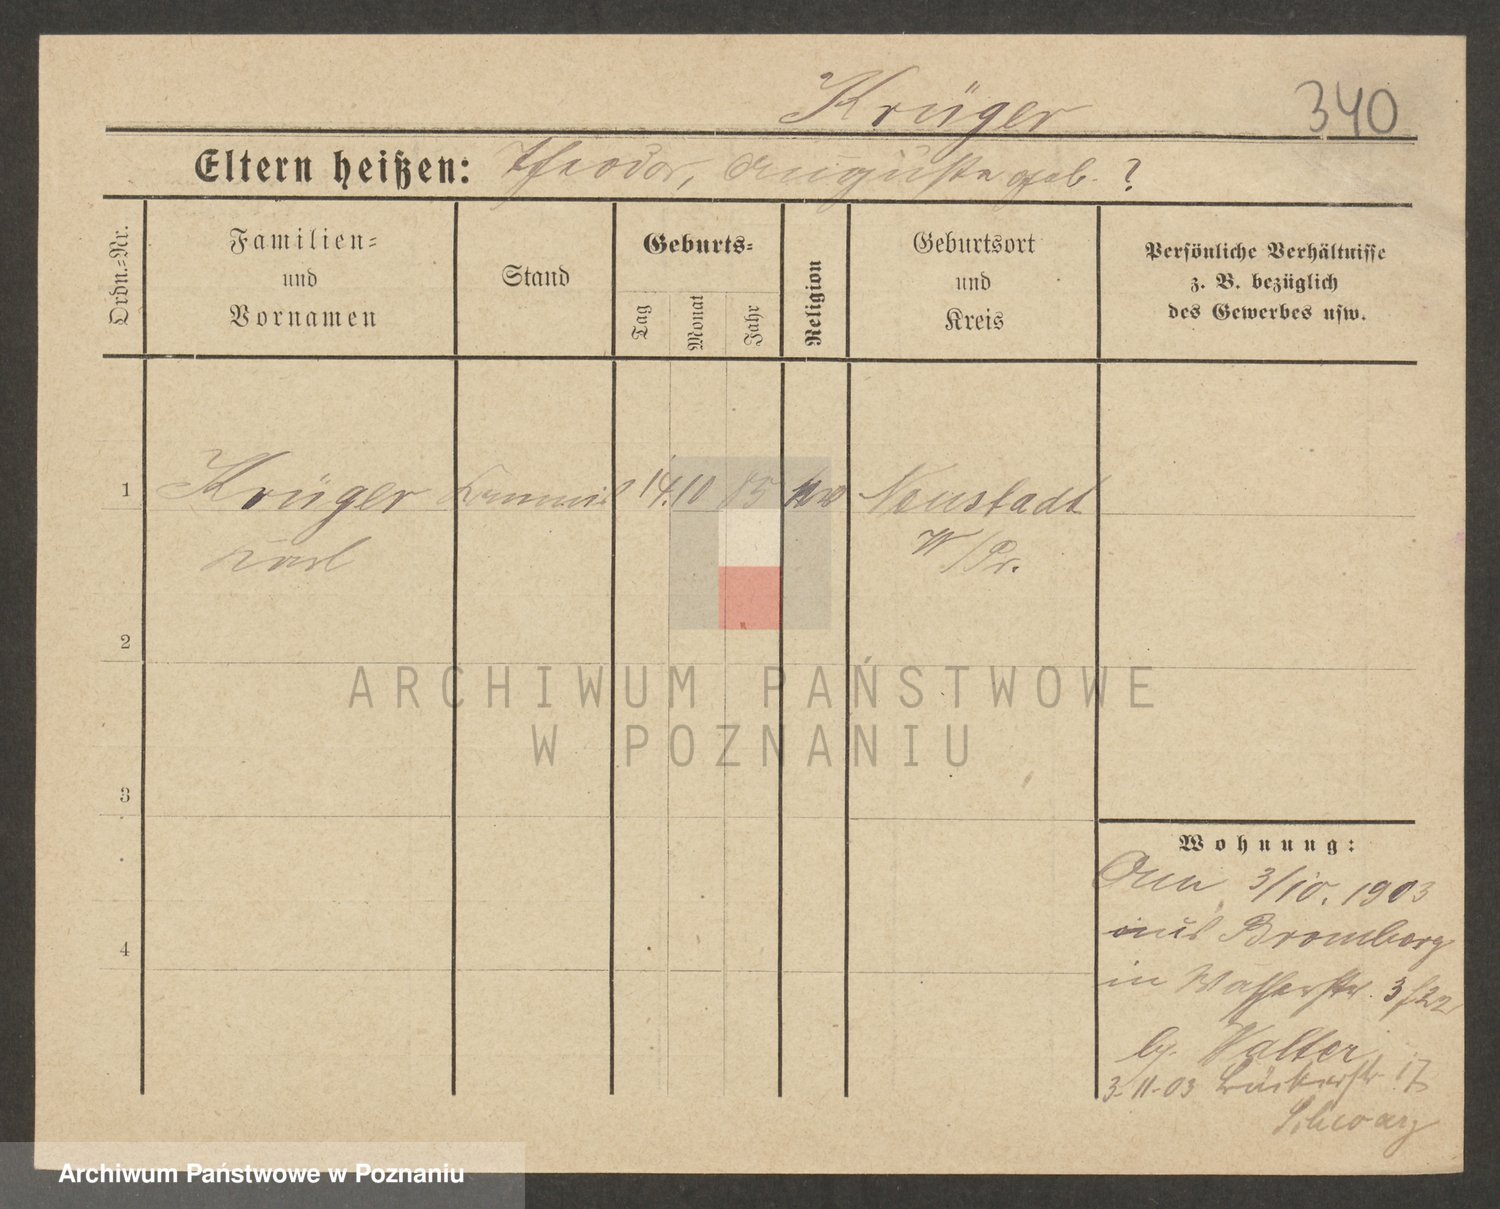 Krüger
340
Eltern heißen: Theodor, Auguste geb. ?
Ordn.-Nr.
Familien-
und
Vornamen
Stand
Geburts-
Tag
Monat
Jahr
Religion
Geburtsort
und
Kreis
Persönliche Verhältnisse
z. B. bezüglich
des Gewerbes usw.
1 Krüger 14. 10 85 Neustadt
Karl W/Pr.
2
3
4
ARCHIWUM PAŃSTWOWE
W POZNANIU
Wohnung:
3/10. 1903
aus Bromberg
in Wasserstr.
b. Walter
3.11.03 Bäckerstr. 17
Schwarz
Archiwum Państwowe w Poznaniu